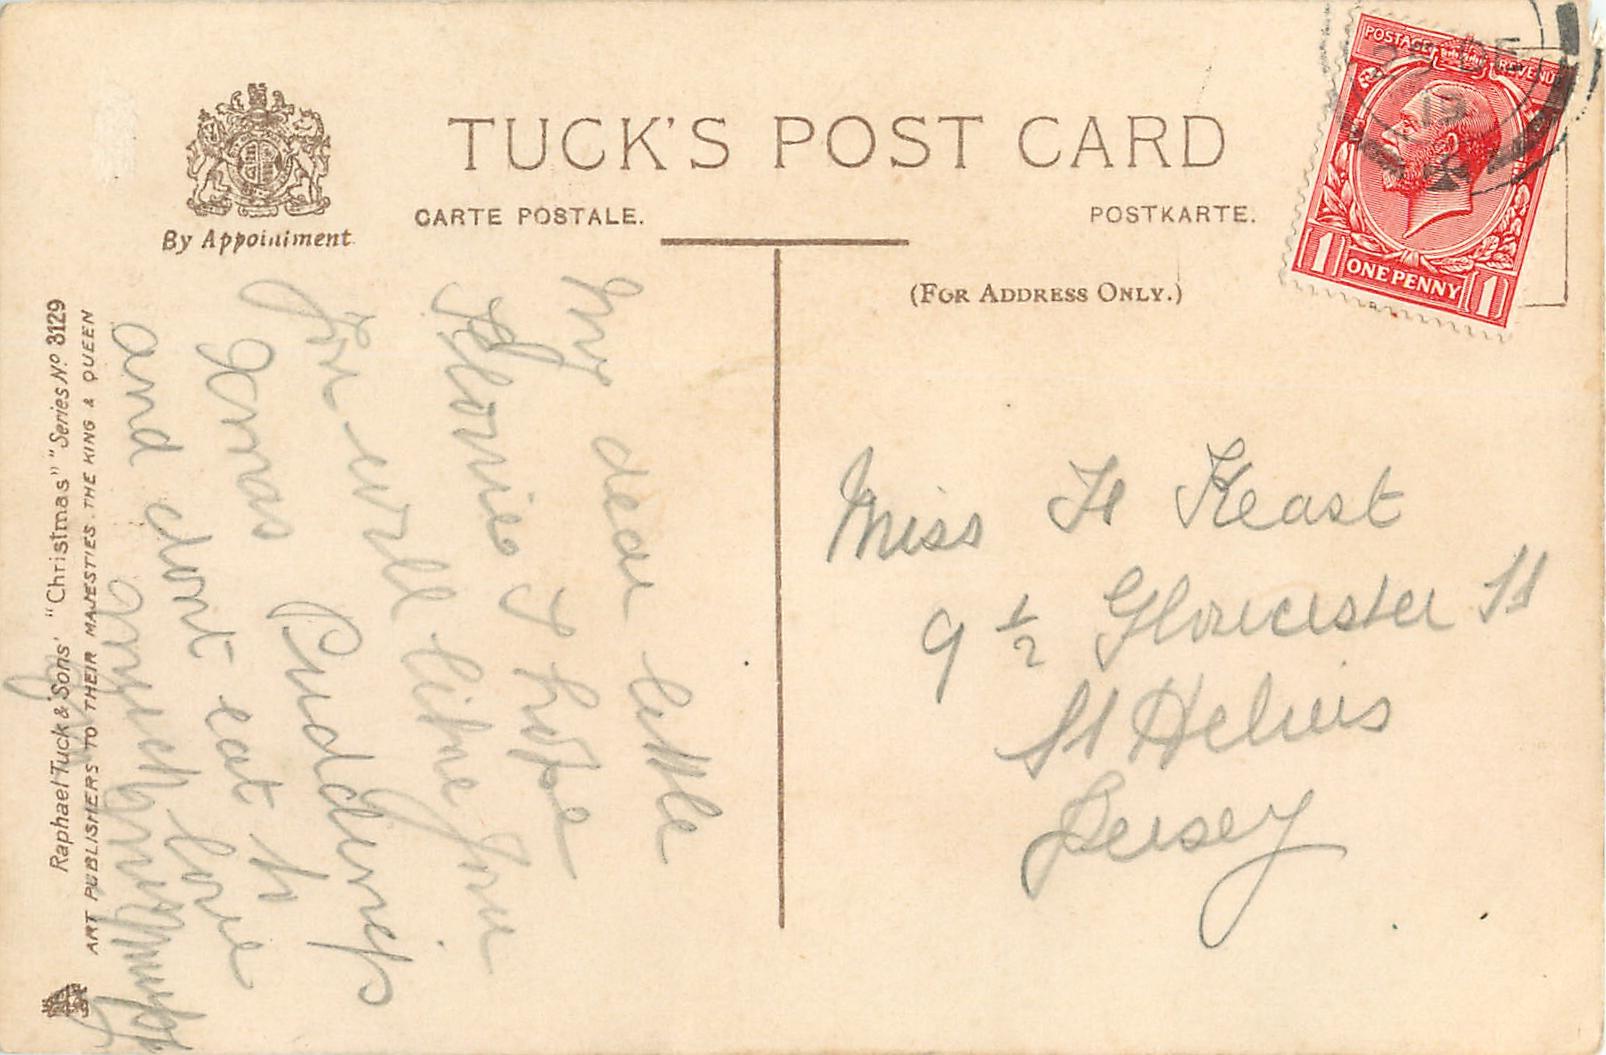 TUCK'S POST CARD
By Appointment
CARTE POSTALE.
POSTKARTE.
(FOR ADDRESS ONLY.)
POSTAGE REVENUE
19
1 ONE PENNY 1
Raphael Tuck & Sons' "Christmas" "Series No 3129
ART PUBLISHERS TO THEIR MAJESTIES THE KING & QUEEN
My dear little
Florrie I hope
you will like your
Xmas Pudding
and dont eat to
much love
Miss F Keast
9 1/2 Gloucester St
St Heliers
Jersey